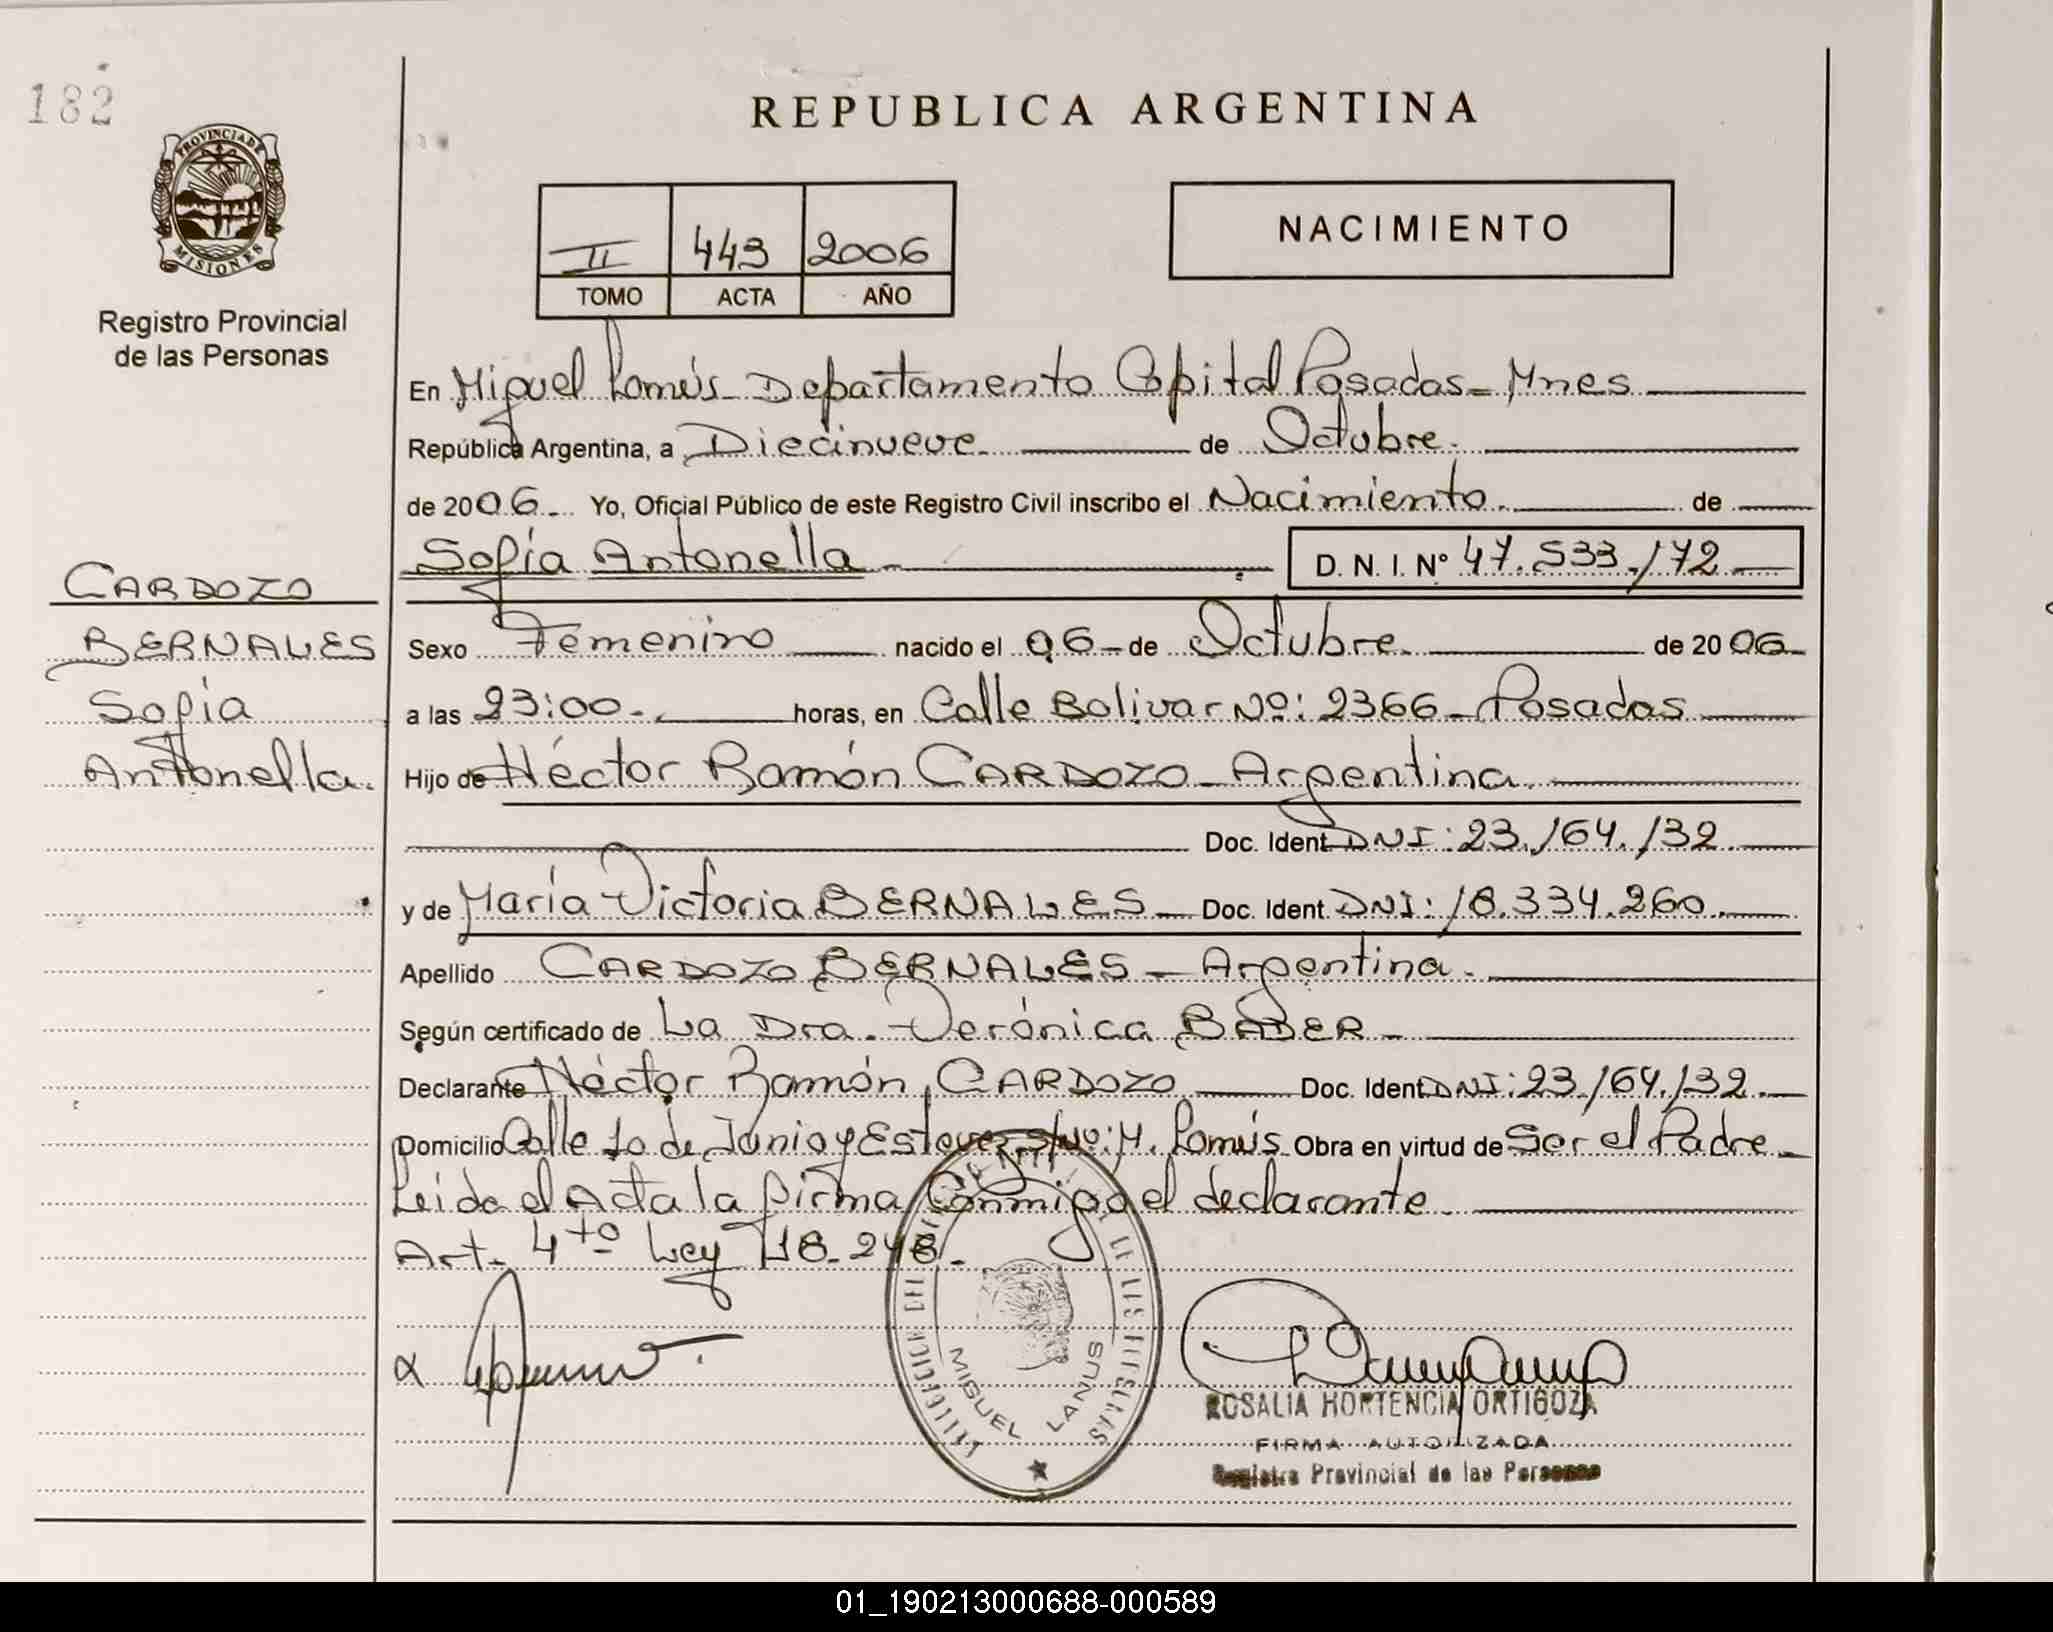 182
REPUBLICA ARGENTINA
PROVINCIA DE
MISIONES
Registro Provincial
de las Personas
II 443 2006
TOMO ACTA AÑO
NACIMIENTO
En Miguel Lanús - Departamento Capital Posadas - Mnes
República Argentina, a Diecinueve de Octubre.
de 2006. Yo, Oficial Público de este Registro Civil inscribo el Nacimiento. de
Sofía Antonella D. N. I. Nº 47.533.172
CARDOZO
BERNALES
Sofia
Antonella.
Sexo Femenino nacido el 06 - de Octubre. de 2006
a las 23:00. horas, en Calle Bolivar Nº: 2366 - Posadas
Hijo de Héctor Ramón CARDOZO - Argentina.
Doc. Ident. DNI: 23.164.132
y de María Victoria BERNALES - Doc. Ident. DNI: 18.334.260.
Apellido CARDOZO BERNALES - Argentina.
Según certificado de La Dra. Verónica BADER -
Declarante Héctor Ramón CARDOZO Doc. Ident. DNI: 23.164.132
Domicilio Calle 10 de Junio y Estevez s/Nº: M. Lanús Obra en virtud de Ser el Padre
Leida el Acta la firma Conmigo el declarante
Art. 4to Ley 18.248.
MIGUEL LANUS
ROSALIA HORTENCIA ORTIGOZA
FIRMA AUTORIZADA
Registro Provincial de las Personas
01_190213000688-000589